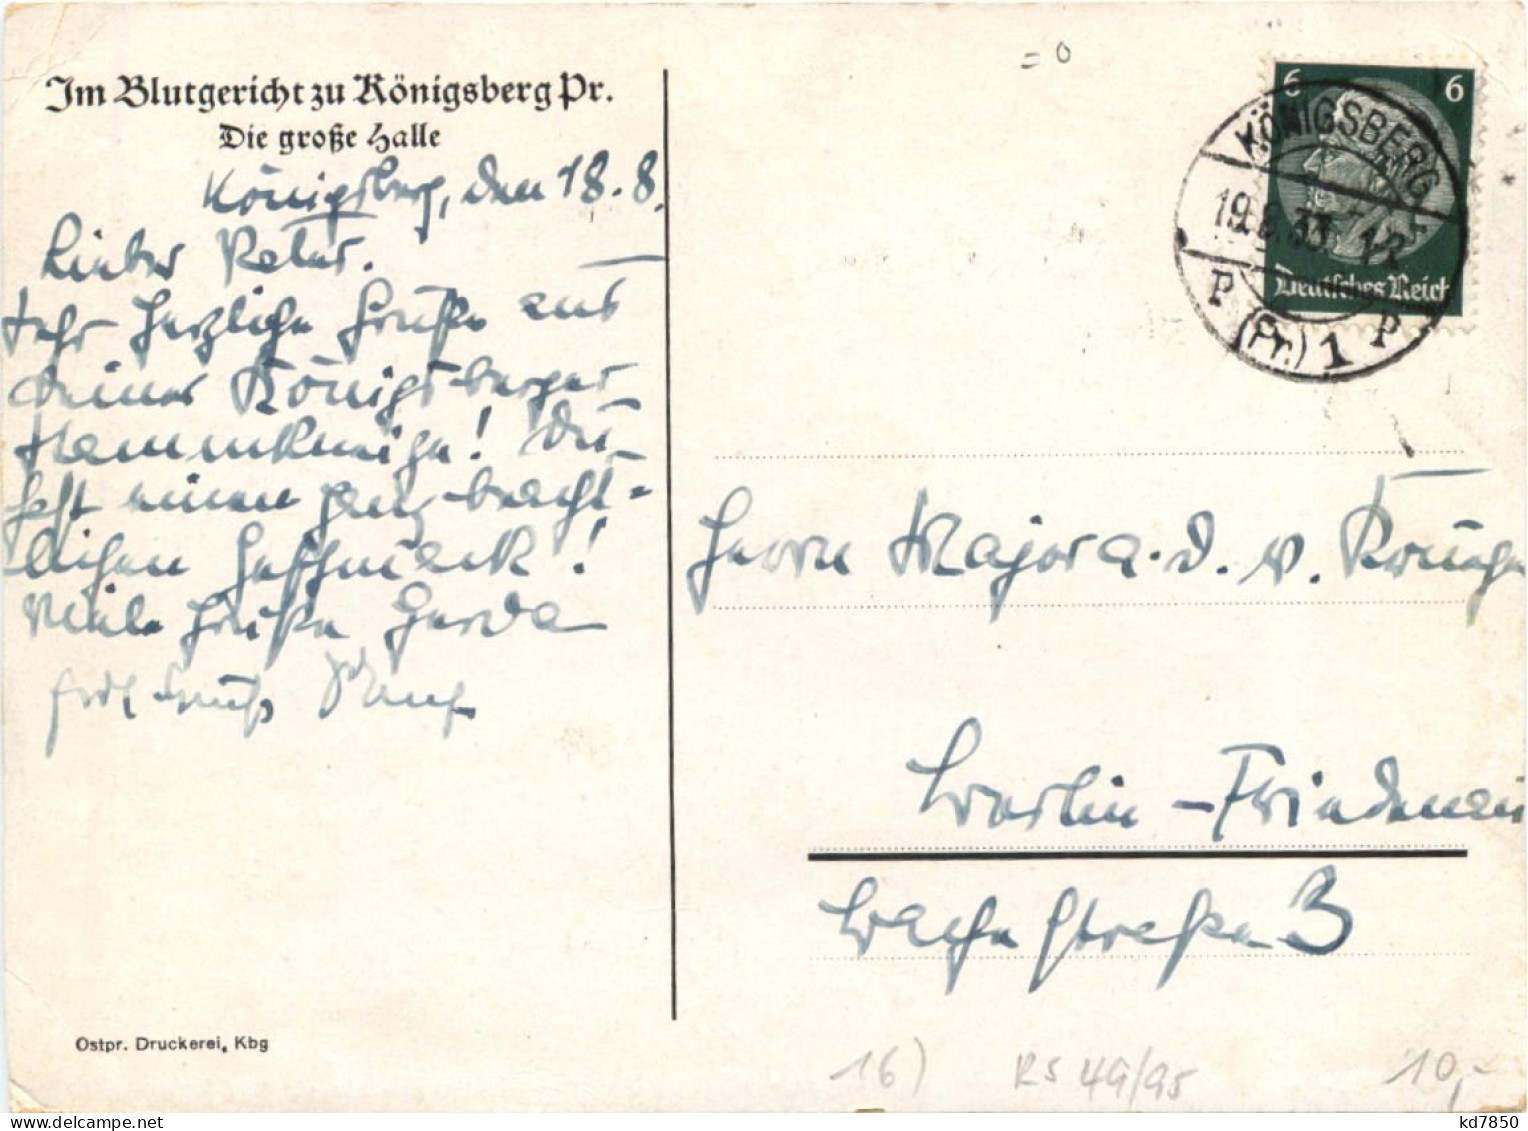 Im Blutgericht zu Königsberg Pr.
Die große Halle
Königsberg, den 18.8.
Lieber Vater.
Sehr herzliche Grüße aus
Deiner Königsberger
Stammkneipe! Du
hast einen ganz beacht-
lichen Geschmack!
Viele Grüße Gerda
Gruß
6 6
KÖNIGSBERG
19.8.33. 
Deutsches Reich
P P
(Pr.) 1
Herrn Major a. D. v. Krüger
Berlin-Friedenau
Wache straße 3
Ostpr. Druckerei, Kbg
16) RS 49/95 10,-
kd7850